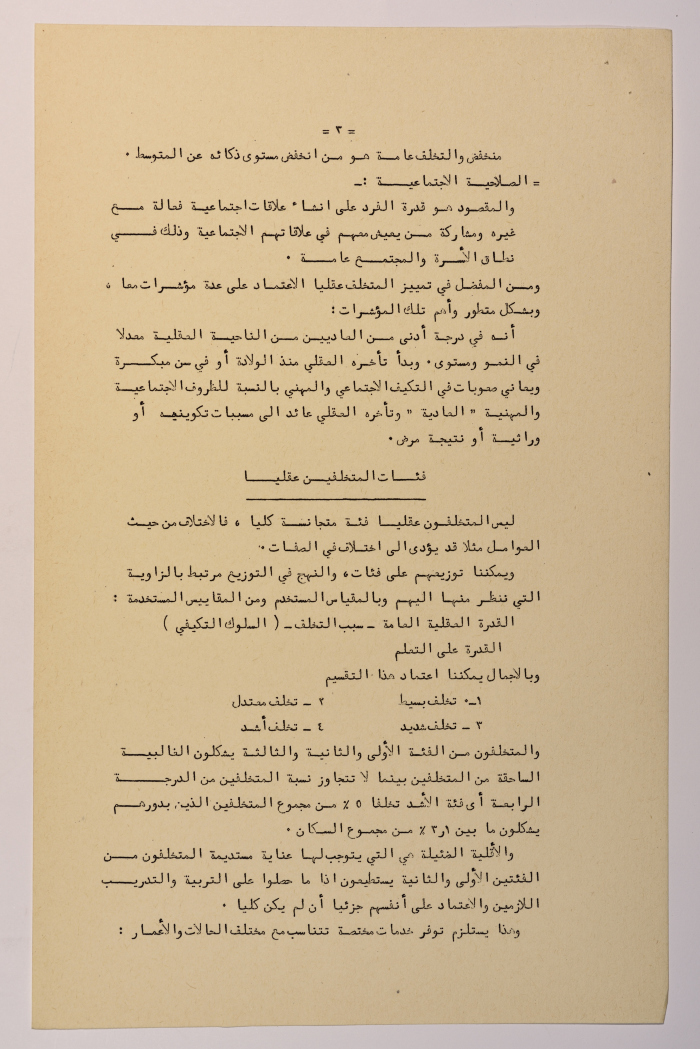 = ٣ =
منخفض والتخلف عامة هو من انخفض مستوى ذكائه عن المتوسط ٠
= الصلاحية الاجتماعية :ـ
والمقصود هو قدرة الفرد على انشاء علاقات اجتماعية فعالة مع
غيره ومشاركة من يعيش معهم في علاقاتهم الاجتماعية وذلك في
نطاق الأسرة والمجتمع عامة ٠
ومن المفضل في تمييز المتخلف عقليا الاعتماد على عدة مؤشرات معا ،
وبشكل متطور وأهم تلك المؤشرات :
أنه في درجة أدنى من العاديين من الناحية العقلية معدلا
في النمو ومستوى ٠ وبدأ تأخره العقلي منذ الولادة أو في سن مبكرة
ويعاني صعوبات في التكيف الاجتماعي والمهني بالنسبة للظروف الاجتماعية
والمهنية " العادية " وتأخره العقلي عائد الى مسببات تكوينيه أو
وراثية أو نتيجة مرض ٠
فئات المتخلفين عقليا
ليس المتخلفون عقليا فئة متجانسة كليا ، فالاختلاف من حيث
العوامل مثلا قد يؤدى الى اختلاف في الصفات ٠
ويمكننا توزيعهم على فئات ، والنهج في التوزيع مرتبط بالزاوية
التي ننظر منها اليهم وبالمقياس المستخدم ومن المقاييس المستخدمة :
القدرة العقلية العامة ـ سبب التخلف ـ ( السلوك التكيفي )
القدرة على التعلم
وبالاجمال يمكننا اعتماد هذا التقسيم
١ـ٠ تخلف بسيط ٢ ـ تخلف معتدل
٣ ـ تخلف شديد ٤ ـ تخلف أشد
والمتخلفون من الفئة الأولى والثانية والثالثة يشكلون الغالبية
الساحقة من المتخلفين بينما لا تتجاوز نسبة المتخلفين من الدرجة
الرابعة أى فئة الأشد تخلفا ٥ ٪ من مجموع المتخلفين الذين بدورهم
يشكلون ما بين ١ر٣ ٪ من مجموع السكان ٠
والأقلية الضئيلة هي التي يتوجب لها عناية مستديمة المتخلفون من
الفئتين الأولى والثانية يستطيعون اذا ما حصلوا على التربية والتدريب
اللازمين والاعتماد على أنفسهم جزئيا أن لم يكن كليا ٠
وهذا يستلزم توفر خدمات مختصة تتناسب مع مختلف الحالات والأعمار :